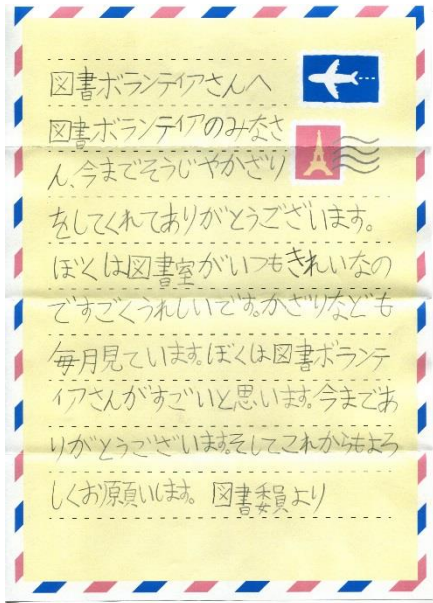 図書ボランティアさんへ
図書ボランティアのみなさ
ん、今までそうじやかざり
をしてくれてありがとうございます。
ぼくは図書室がいつもきれいなの
ですごくうれしいです。かざりなども
毎月見ています。ぼくは図書ボランテ
ィアさんがすごいと思います。今まであ
りがとうございます。そしてこれからもよろ
しくお願いします。 図書委員より